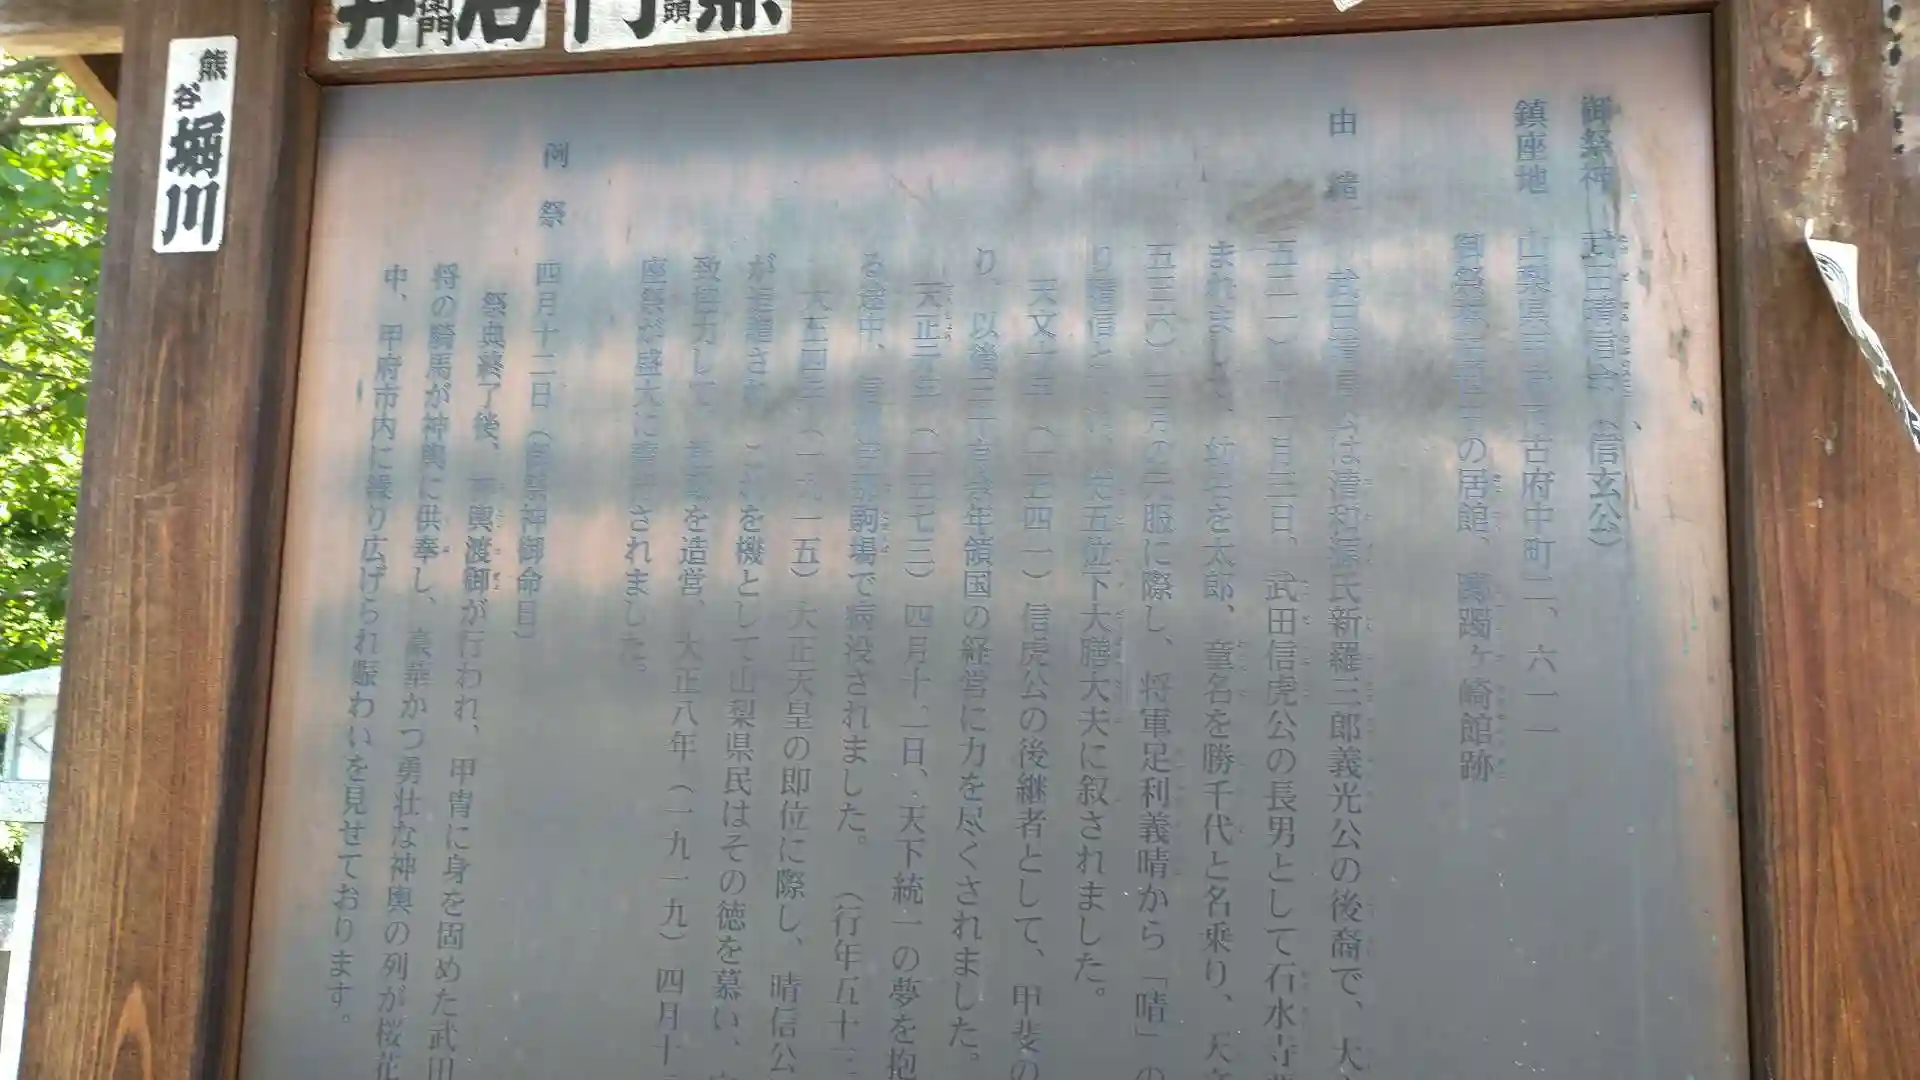 御祭神 武田晴信公（信玄公）
鎮座地 山梨県甲府市古府中町二、六一一
御祭神三代の居館、躑躅ヶ崎館跡
由緒 武田晴信公は清和源氏新羅三郎義光公の後裔で、大
五二一）十一月三日、武田信虎公の長男として石水寺
まれまして、幼名を太郎、童名を勝千代と名乗り、天文
五三六）三月の元服に際し、将軍足利義晴から「晴」の
り晴信と 従五位下大膳大夫に叙されました。
天文十年（一五四一）信虎公の後継者として、甲斐の
り、以後三十有余年領国の経営に力を尽くされました。
天正元年（一五七三）四月十二日、天下統一の夢を抱
る途中、信州 駒場で病没されました。（行年五十三
大正四年（一九一五）大正天皇の即位に際し、晴信公
が追贈され、これを機として山梨県民はその徳を慕い、
致協力して、社殿を造営、大正八年（一九一九）四月十
座祭が盛大に 行されました。
例祭 四月十二日（御祭神御命日）
祭典終了後、神輿渡御が行われ、甲冑に身を固めた武田
将の騎馬が神輿に供奉し、豪華かつ勇壮な神輿の列が桜花
中、甲府市内に繰り広げられ賑わいを見せております。
熊谷
堀川